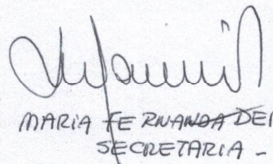 MARIA FERNANDA DEL
SECRETARIA -